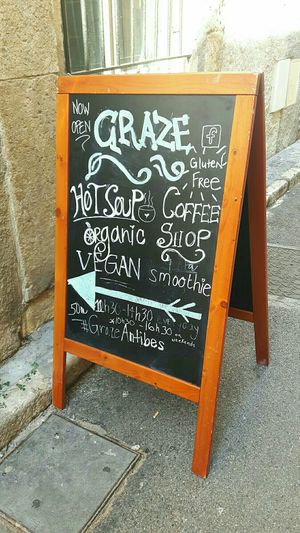 NOW OPEN
GRAZE
f
Gluten Free
HOT SOUP COFFEE
Organic SHOP
VEGAN smoothie
50m 10h30-14h30
x10h30-16h30 on weekends
#GrazeAntibes